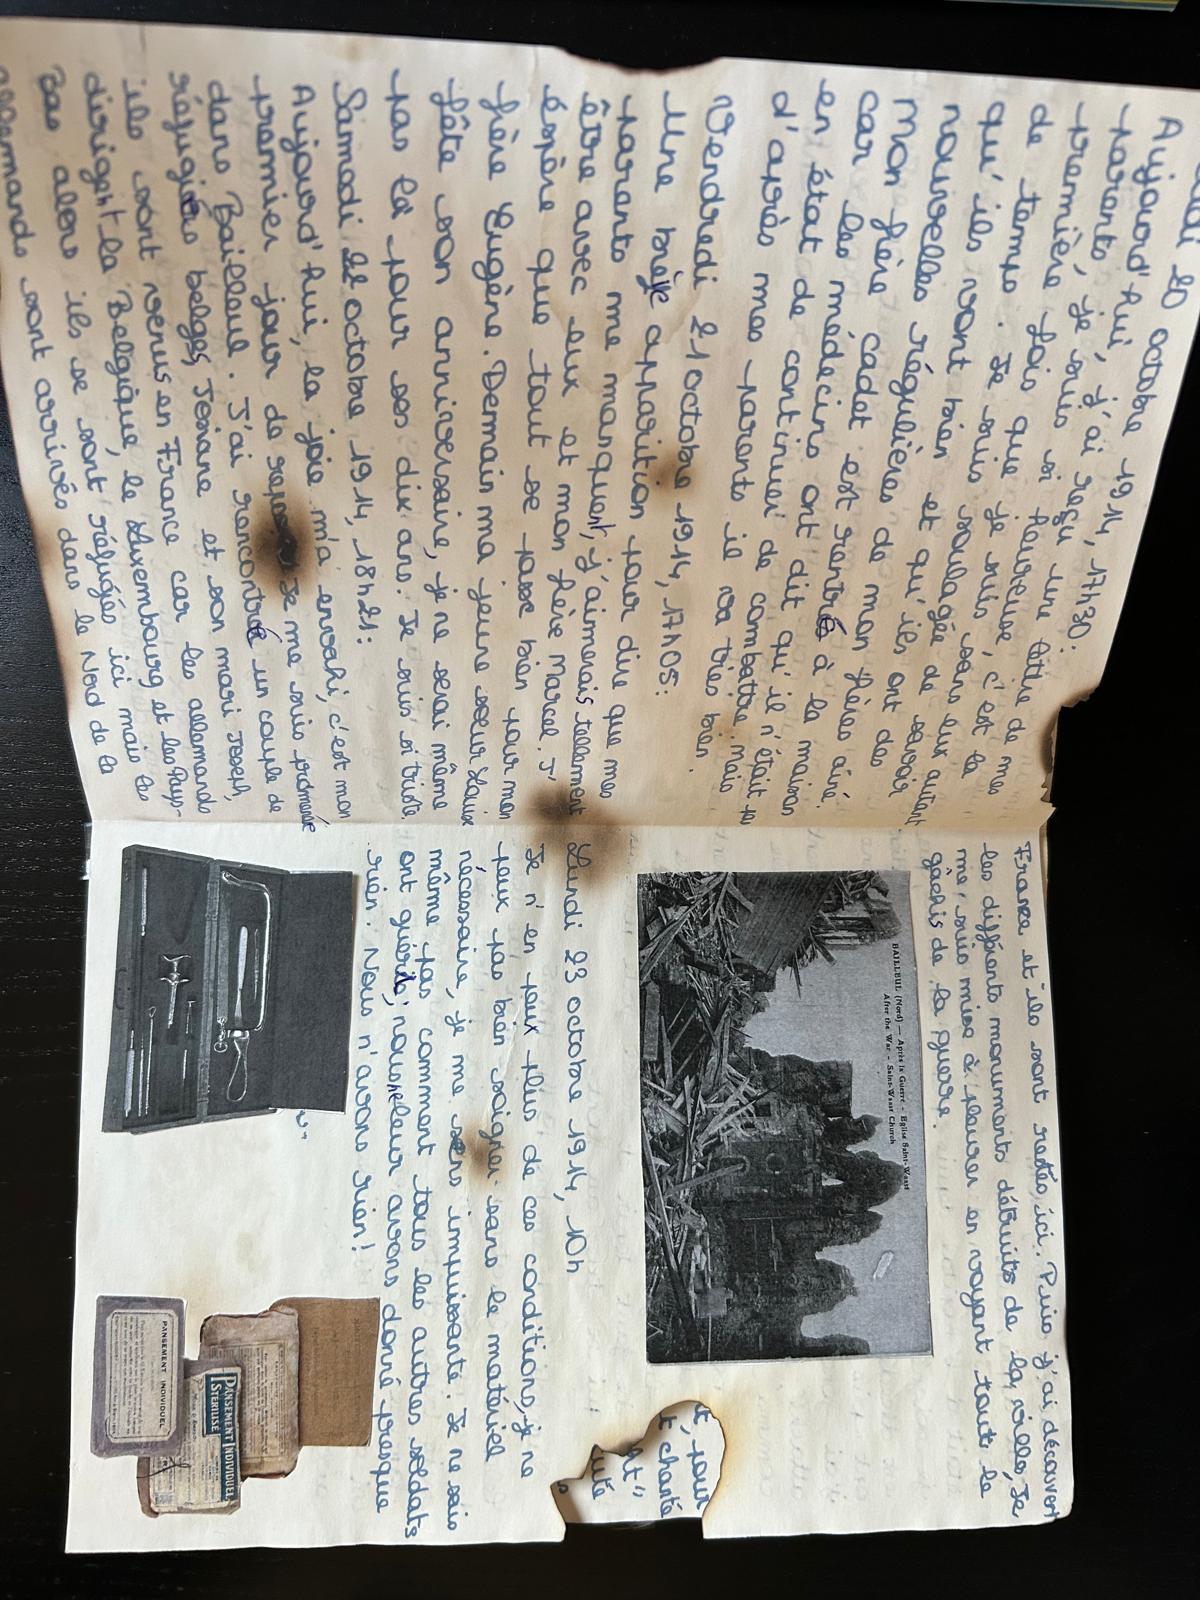 20 octobre 1914, 17h30:
Aujourd'hui, j'ai reçu une lettre de mes
parents, je suis si heureuse, c'est la
première fois que je suis sans eux autant
de temps. Je suis soulagée de savoir
qu'ils vont bien et qu'ils ont des
nouvelles régulières de mon frère aîné.
Mon frère cadet est rentré à la maison
car les médecins ont dit qu'il n'était pas
en état de continuer de combattre. Mais
d'après mes parents il va très bien.
Vendredi 21 octobre 1914, 17h05:
Une brève apparition pour dire que mes
parents me manquent, j'aimerais tellement
être avec eux et mon frère Marcel. J'
éspère que tout se passe bien pour mon
frère Eugène. Demain ma jeune sœur Louise
fête son anniversaire, je ne serai même
pas là pour ses dix ans. Je suis si triste.
Samedi 22 octobre 1914, 18h21:
Aujourd'hui, la joie m'a envahi, c'est mon
premier jour de repos. Je me suis promenée
dans Bailleul. J'ai rencontré un couple de
réfugiés belges, Josiane et son mari Joseph,
ils sont venus en France car les allemands
dirigent la Belgique, le Luxembourg et les Pays-
Bas alors ils se sont réfugiés ici mais les
allemands sont arrivés dans le Nord de la
France et ils sont restés ici. Puis j'ai découvert
les différents monuments détruits de la ville, Je
me suis mise à pleurer en voyant tout le
gâchis de la guerre.
BAILLEUL (Nord) — Après la Guerre - Eglise Saint-Waast
After the War - Saint-Waast Church
t, pour
t chanté
nt"
uté
Lundi 23 octobre 1914, 10h
Je n'en peux plus de ces conditions, je ne
peux pas bien soigner sans le matériel
nécessaire, je me sens impuissante. Je ne sais
même pas comment tous les autres soldats
ont guéris; nous ne leur avons donné presque
rien. Nous n'avons rien!
PANSEMENT INDIVIDUEL
STÉRILISÉ
PANSEMENT INDIVIDUEL